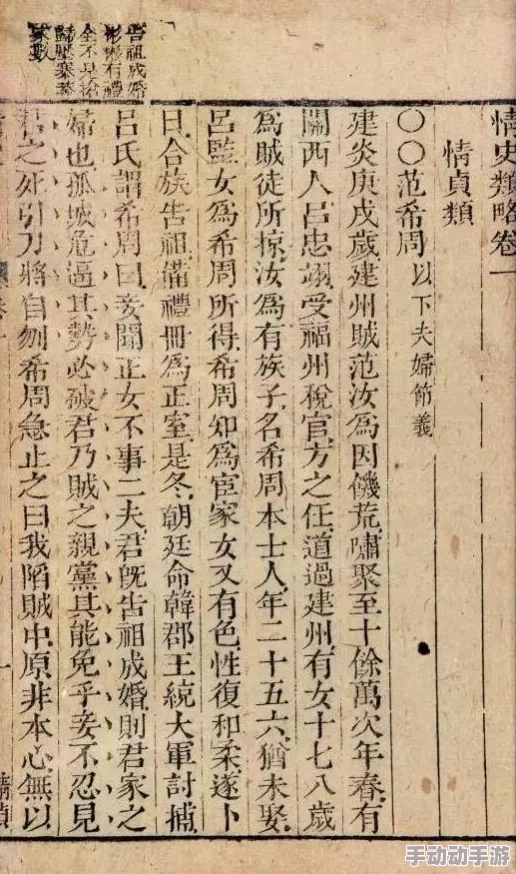 告祖成婚
彬彬有禮
全不是搶
情史類略卷一
情貞類
〇〇范希周以下夫婦節義
建炎庚戌歲建州賊范汝為因饑荒嘯聚至十餘萬次年春有
關西人呂忠翊受福州稅官方之任道過建州有女十七八歲
為賊徒所掠汝為有族子名希周本士人年二十五六猶未娶
呂監女為希周所得希周知為宦家女又有色性復和柔遂卜
日合族告祖備禮冊為正室是冬朝廷命韓郡王統大軍討捕
呂氏謂希周曰妾聞正女不事二夫君既告祖成婚則君家之
婦也孤城危逼其勢必破君乃賊之親黨其能免乎妾不忍見
君之死引刀將自刎希周急止之曰我陷賊中原非本心無以
情貞
手动动手游